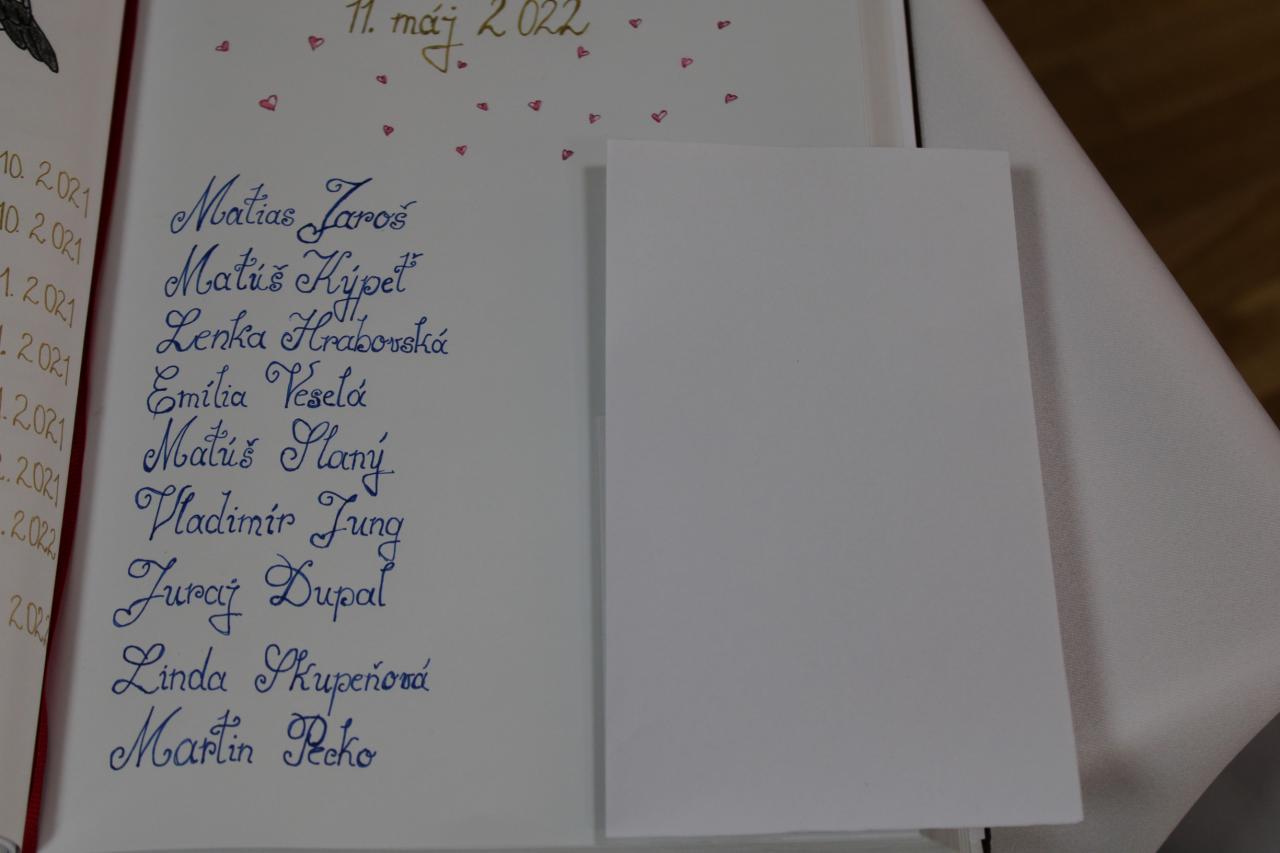 10. 2021
10. 2021
1. 2021
. 2021
1. 2021
2. 2021
. 2022
2022
11. máj 2022
Matias Jaroš
Matúš Kýpeť
Lenka Hrabovská
Emília Veselá
Matúš Slaný
Vladimír Jung
Juraj Dupaľ
Linda Skupeňová
Martin Pecko